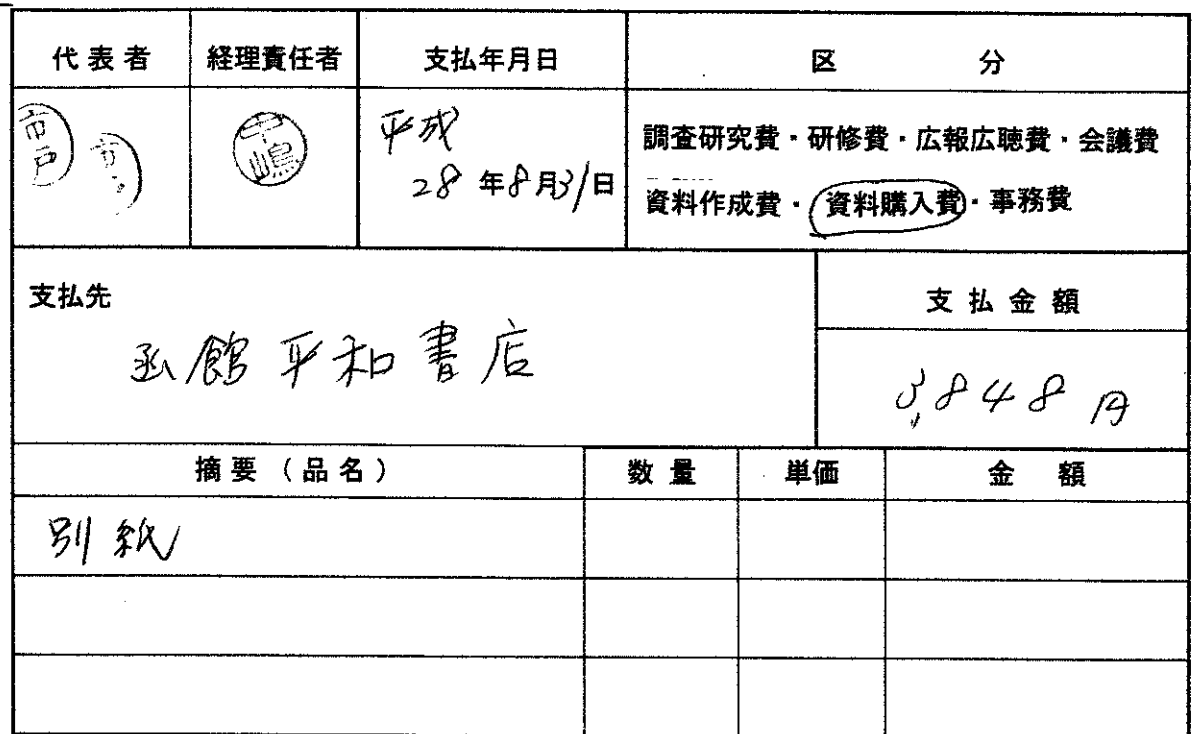 代表者 経理責任者 支払年月日 区分
市戸 中嶋 平成
28年8月31日
調査研究費・研修費・広報広聴費・会議費
資料作成費・資料購入費・事務費
支払先 支払金額
函館平和書店
3,848円
摘要（品名） 数量 単価 金額
別紙